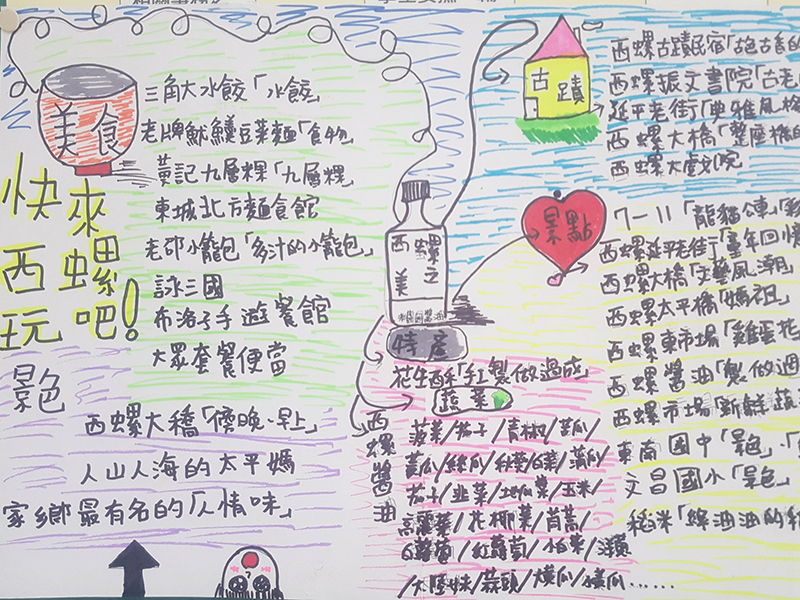 美食
三角大水餃「水餃」
老牌魷魚羹豆菜麵「食物」
黃記九層粿「九層粿」
東城北方麵食館
老邵小籠包「多汁的小籠包」
詠三國
布洛子手遊餐館
大眾套餐便當
快來
西螺
玩吧!
景色
西螺大橋「傍晚、早上」
人山人海的太平媽
家鄉最有名的「人情味」
西螺之
美
特產
花生酥「手工製做過成」
「蔬菜」
西螺醬油
菠菜/茄子/青椒/菜瓜/
黃瓜/絲瓜/秋葵/白菜/蒲瓜/
茄子/韭菜/地瓜葉/玉米/
高麗菜/花椰菜/茼萵/
白蘿蔔/紅蘿蔔/小白菜/
/大陸妹/蒜頭/
古蹟
西螺古蹟民宿「
西螺振文書院「古老
延平老街「典雅風
西螺大橋「整座橋的
西螺大戲院
景點
7-11「龍貓公車」
西螺延平老街「童年回憶
西螺大橋「文藝風潮
西螺太平橋「媽祖」
西螺東市場「雞蛋花
西螺醬油「製做過
西螺市場「新鮮蔬
東南國中「景色」、
文昌國小「景色」
稻米「綠油油的